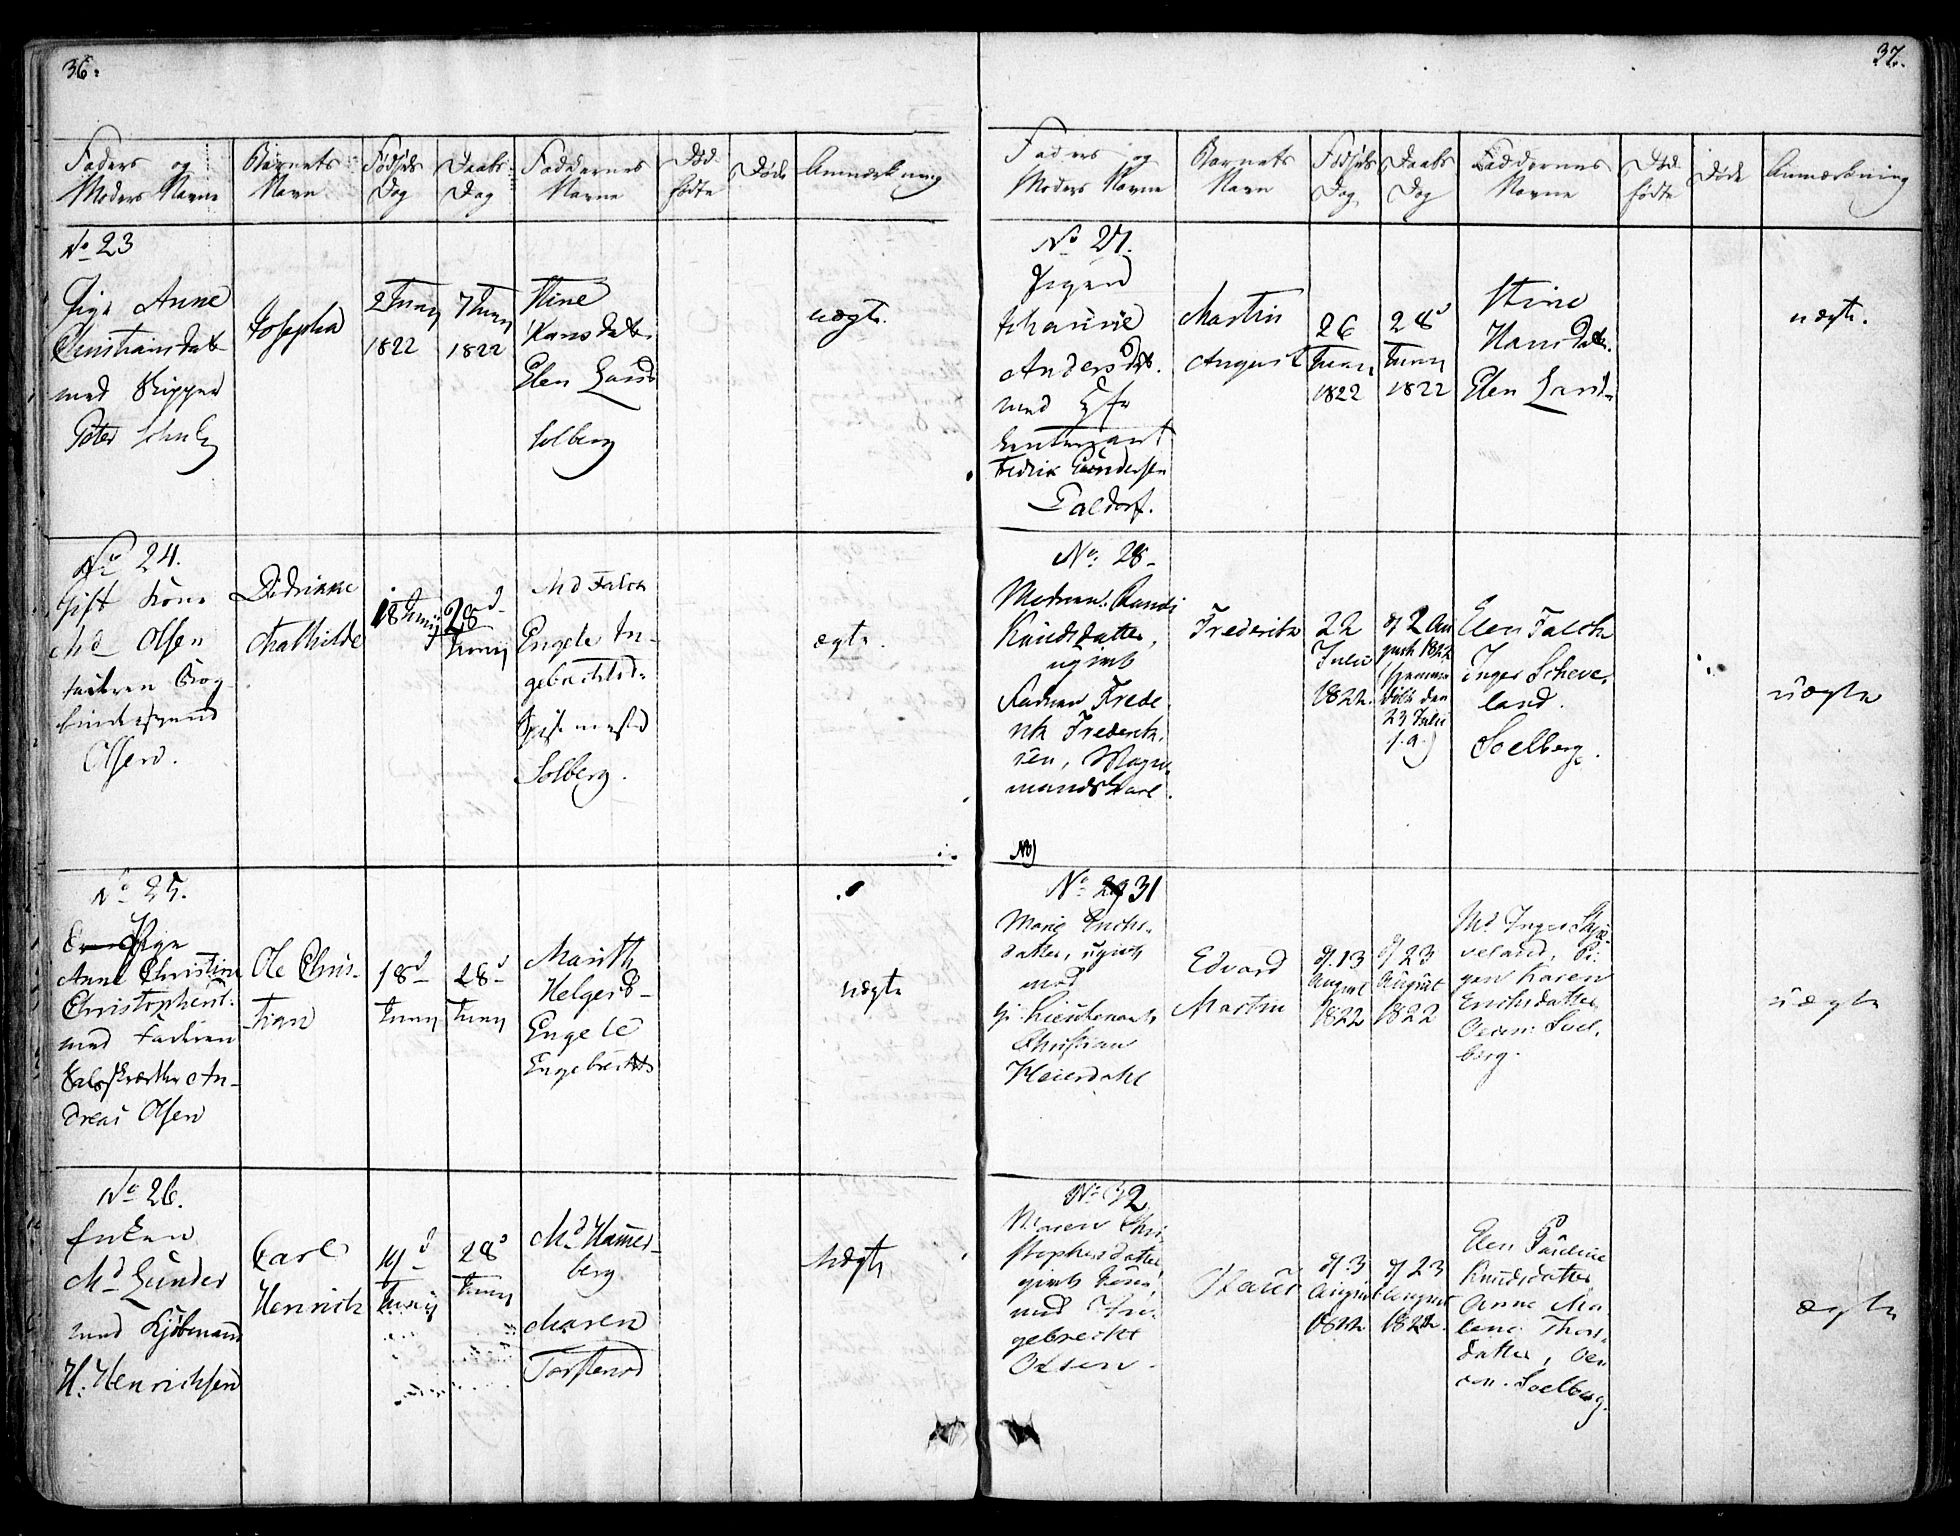 36.
Faders og
Moders Navne
Barnets
Navn
Fødsels
Dag
Daabs
Dag
Faddernes
Navne
Død
fødte
Døde
Anmærkning
No 23
Pige Anne
Christiansdat
med Skipper
Peter Schultz
Josepha
2 Juny
1822
7 Juny
1822
Stine
Hansdat.
Elen Lands
Solberg
uægte.
No 24.
Gift Kone
Md Olsen
faderen Bog
binder svend
Olsen.
Didrikke
Mathilde
18 Juny
28d
Juny
Md Falck
Engele In-
gebrechtsd.
Solberg.
ægte.
No 25.
Pige
Anne Christine
Christophersd.
med Faderen
An-
dreas Olsen
Ole Chris-
tian
18d
Juny
28d
Juny
Marith
Helgesd-
Engele
Engebrechts
uægte
No 26.
Enken
Md Gunder
med Kjøbmand
H. Henrichsen
Carl
Henrich
19d
Juny
28d
Juny
Md Hammer-
berg
Maren
Torstensd
uægte
37.
Faders og
Moders Navne
Barnets
Navn
Fødsels
Dag
Daabs
Dag
Faddernes
Navne
Død
fødte
Døde
Anmærkning
No 27.
Pigen
Johanne
Andersdat.
med
Fedrik Gundersen
Paldorf.
Martin
August
26
Juny
1822
28d
Juny
1822
Stine
Hansdat.
Elen Lands
uægte.
No. 28-
Randi
Knudsdatter,
ugivt
Faderen Frede
rik Frederik
sen, Vogn
mandskarl.
Frederik
22
Julii
1822.
d 2 Au
gust 1822
(hjemme
døbt den
23 Julii
s. a.)
Elen Falch
Inger Scheve-
land.
Soelberg.
uægte
NB)
No 29) 31
Marie Erichs-
datter, ugivt
med
Lieutenant
Christian
Heierdahl
Edvard
Martin
d. 13
August
1822
d 23
August
1822
Md Inger Skje-
veland, Pi-
gen Karen
Erichsdatter
Soel-
berg.
uægte
No 32
Maren Chri-
stophersdatter
givt kone,
med In-
gebrecht
Olsen.
d. 3
August
1822
d 23
August
1822.
Elen Pauline
Knudsdatter
Anne Ma-
lene Thors-
datter,
Soelberg.
ægte